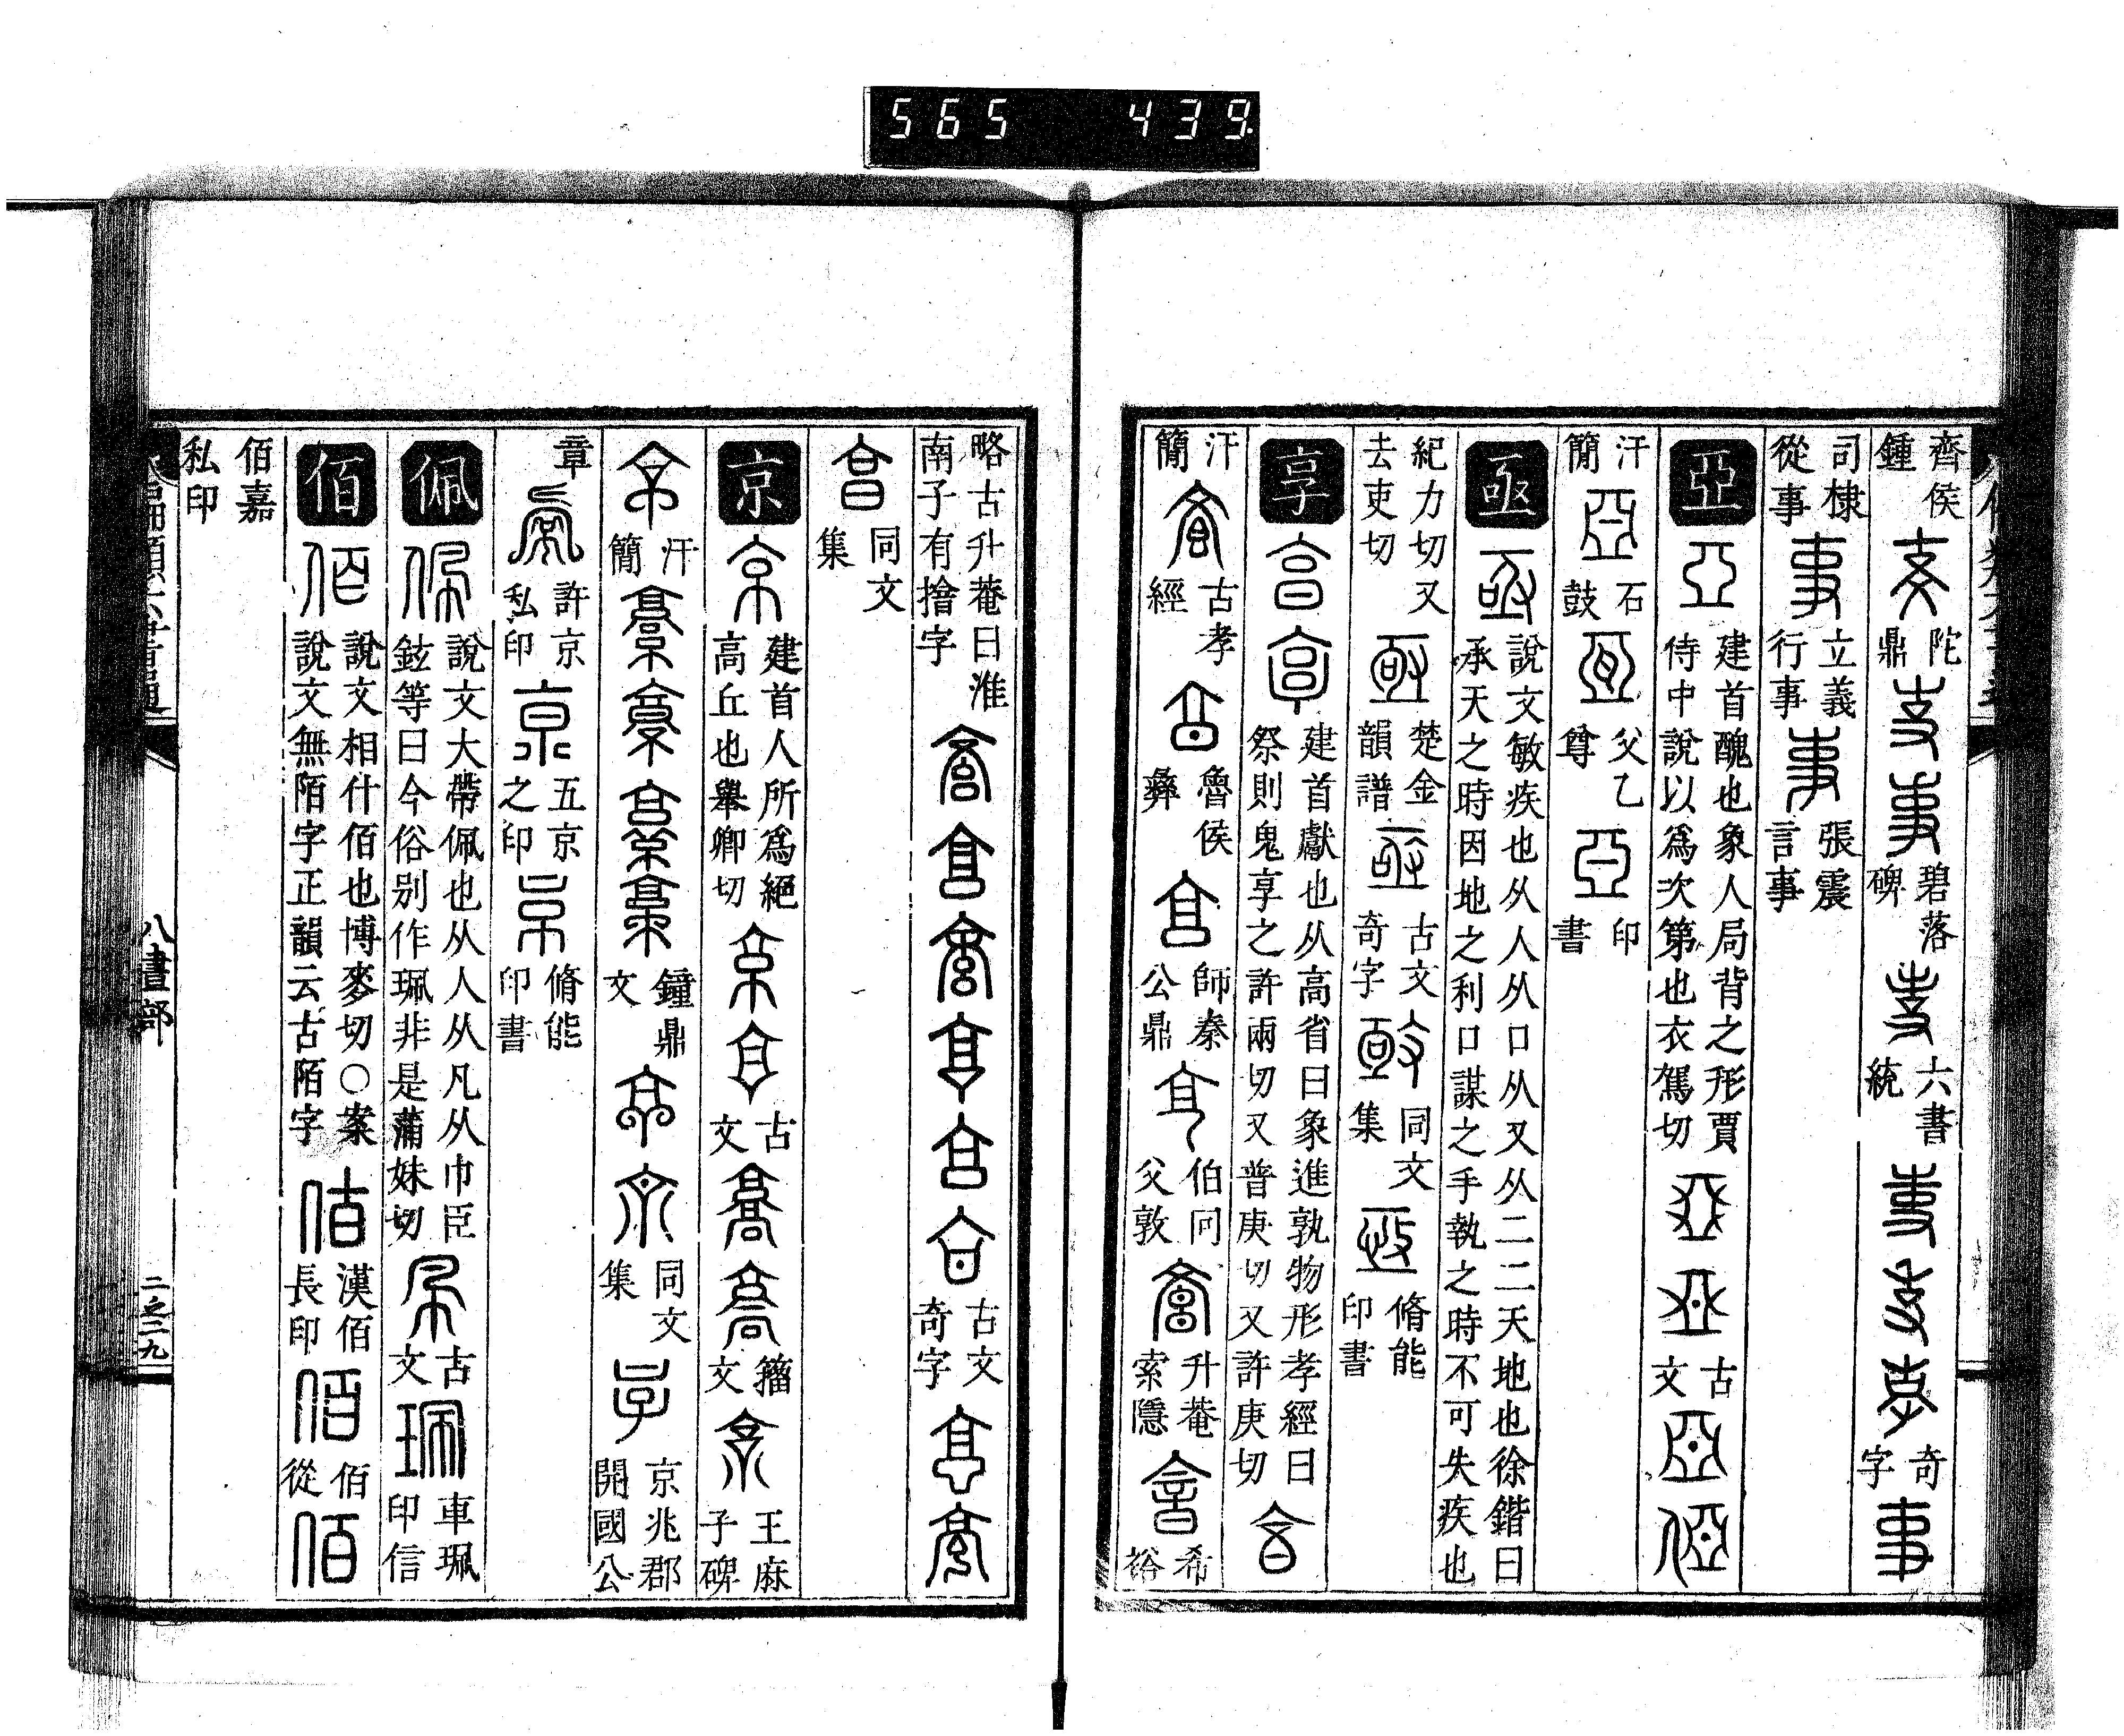 565 439
齊侯鍾 陀鼎 碧落碑 六書統 奇字
司棣從事 立義行事 張震言事
亞 建首醜也象人局背之形賈侍中說以爲次第也衣駕切 古文
汗簡 石鼓 父乙尊 印書
亟 說文敏疾也从人从口从又从二二天地也徐鍇曰承天之時因地之利口謀之手執之時不可失疾也
紀力切又去吏切 楚金韻譜 古文奇字 同文集 脩能印書
享 建首獻也从高省曰象進孰物形孝經曰祭則鬼享之許兩切又普庚切又許庚切
汗簡 古孝經 魯侯彝 師秦公鼎 伯冋父敦 升菴索隱 希裕
略古升菴曰淮南子有㑹字 古文奇字
同文集
京 建首人所爲絕高丘也舉卿切 古文 籀文 王庥子碑
汗簡 鐘鼎文 同文集 京兆郡開國公
章 許京私印 五京之印 脩能印書
佩 說文大帶佩也从人从凡从巾臣鉉等曰今俗别作珮非是蒲妹切 古文 車珮印信
佰 說文相什佰也博麥切○案說文無陌字正韻云古陌字 漢佰長印 佰從
佰嘉私印
八畫部
二之三九